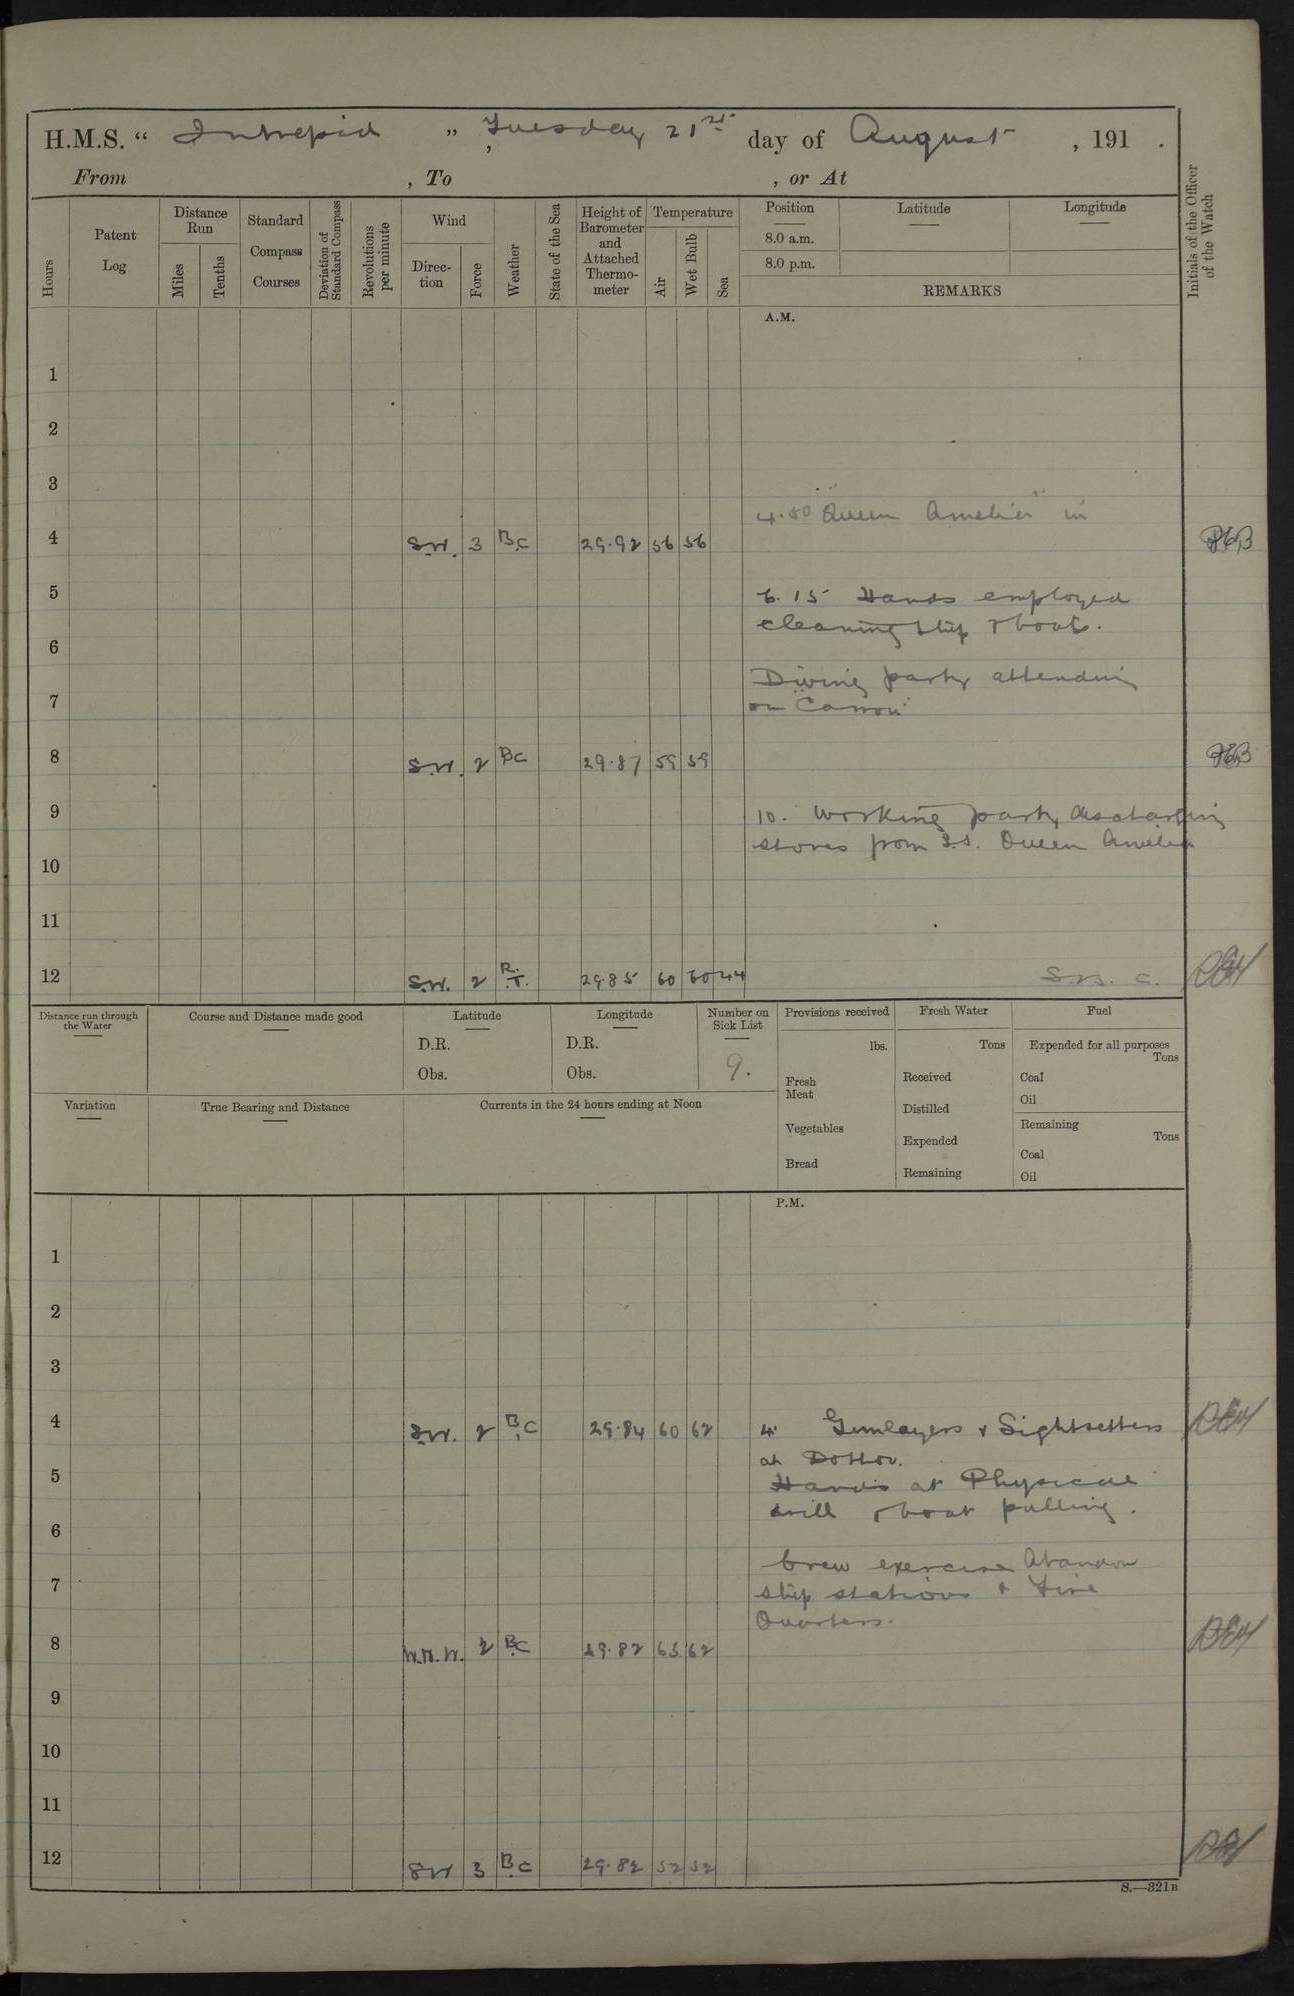 H.M.S. “ Intrepid ”, Tuesday 21st day of August , 191 .
From , To , or At
Hours
Patent Log
Distance Run
Miles
Tenths
Standard Compass Courses
Deviation of Standard Compass
Revolutions per minute
Wind
Direc- tion
Force
Weather
State of the Sea
Height of Barometer and Attached Thermo- meter
Temperature
Air
Wet Bulb
Sea
Position
8.0 a.m.
8.0 p.m.
Latitude
Longitude
REMARKS
Initials of the Officer of the Watch
A.M.
1
2
3
4.50 "Queen Amelia" in
4 S.W. 3 B.C 29.92 56 56
5
6.15 Hands employed
cleaning ship & boats.
6
Diving party attending
7
on "
8 S.W. 2 BC 29.87 59 59
9
10. Working party discharging
stores from S.S. Queen Amelia
10
11
12 S.W. 2 R.T. 29.85 60 60 44
Distance run through the Water
Course and Distance made good
Latitude
D.R.
Obs.
Longitude
D.R.
Obs.
Number on Sick List
9.
Provisions received
lbs.
Fresh Meat
Vegetables
Bread
Fresh Water
Tons
Received
Distilled
Expended
Remaining
Fuel
Expended for all purposes
Tons
Coal
Oil
Remaining
Tons
Coal
Oil
Variation
True Bearing and Distance
Currents in the 24 hours ending at Noon
P.M.
1
2
3
4 S.W. 2 B.C 29.84 60 62 4. Gunlayers & Sightsetters
at Dotter.
5
Hands at Physical
drill & boat pulling.
6
Crew exercise Abandon
7
ship stations & Fire
Quarters.
8 W.N.W. 2 B.C 29.82 63 62
9
10
11
12 SW 3 B.C 29.82 52 52
S.—321B